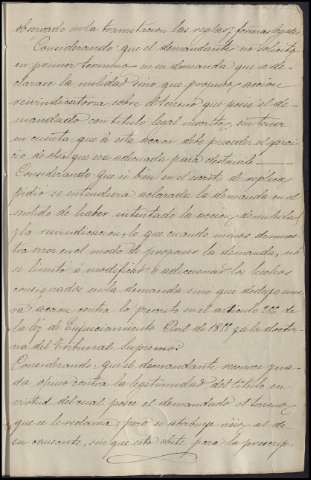 observado en la tramitacion las reglas y formas legales
Considerando que el demandante no solicita
en primer termino en su demanda que se de-
clarara la nulidad sino que propuso accion
reivindicatoria sobre el terreno que posee el de-
mandado con titulo legal inscrito, sin tener
en cuenta que á esta accion debe preceder el ejerci-
cio de otra que sea adecuada para obtenerla
Considerando que si bien en el escrito de replica
pidio se entendiera aclarada la demanda en el
sentido de haber intentado la accion de nulidad
y la reivindicacion, lo que cuando menos demues-
tra error en el modo de proponer la demanda, no
se limitó á modificar ó adicionar los hechos
consignados en la demanda sino que dedujo nue-
va accion contra lo prescrito en el articulo 222 de
la ley de Enjuiciamiento Civil de 1877 y a la doctri-
na del Tribunal Supremo
Considerando que el demandante reconoce que na-
da opuso contra la legitimidad del titulo en
virtud del cual posee el demandado el terreno
que se le reclama; pero si atribuye vicio al de
su causante, sin que esto obste para la prescrip-